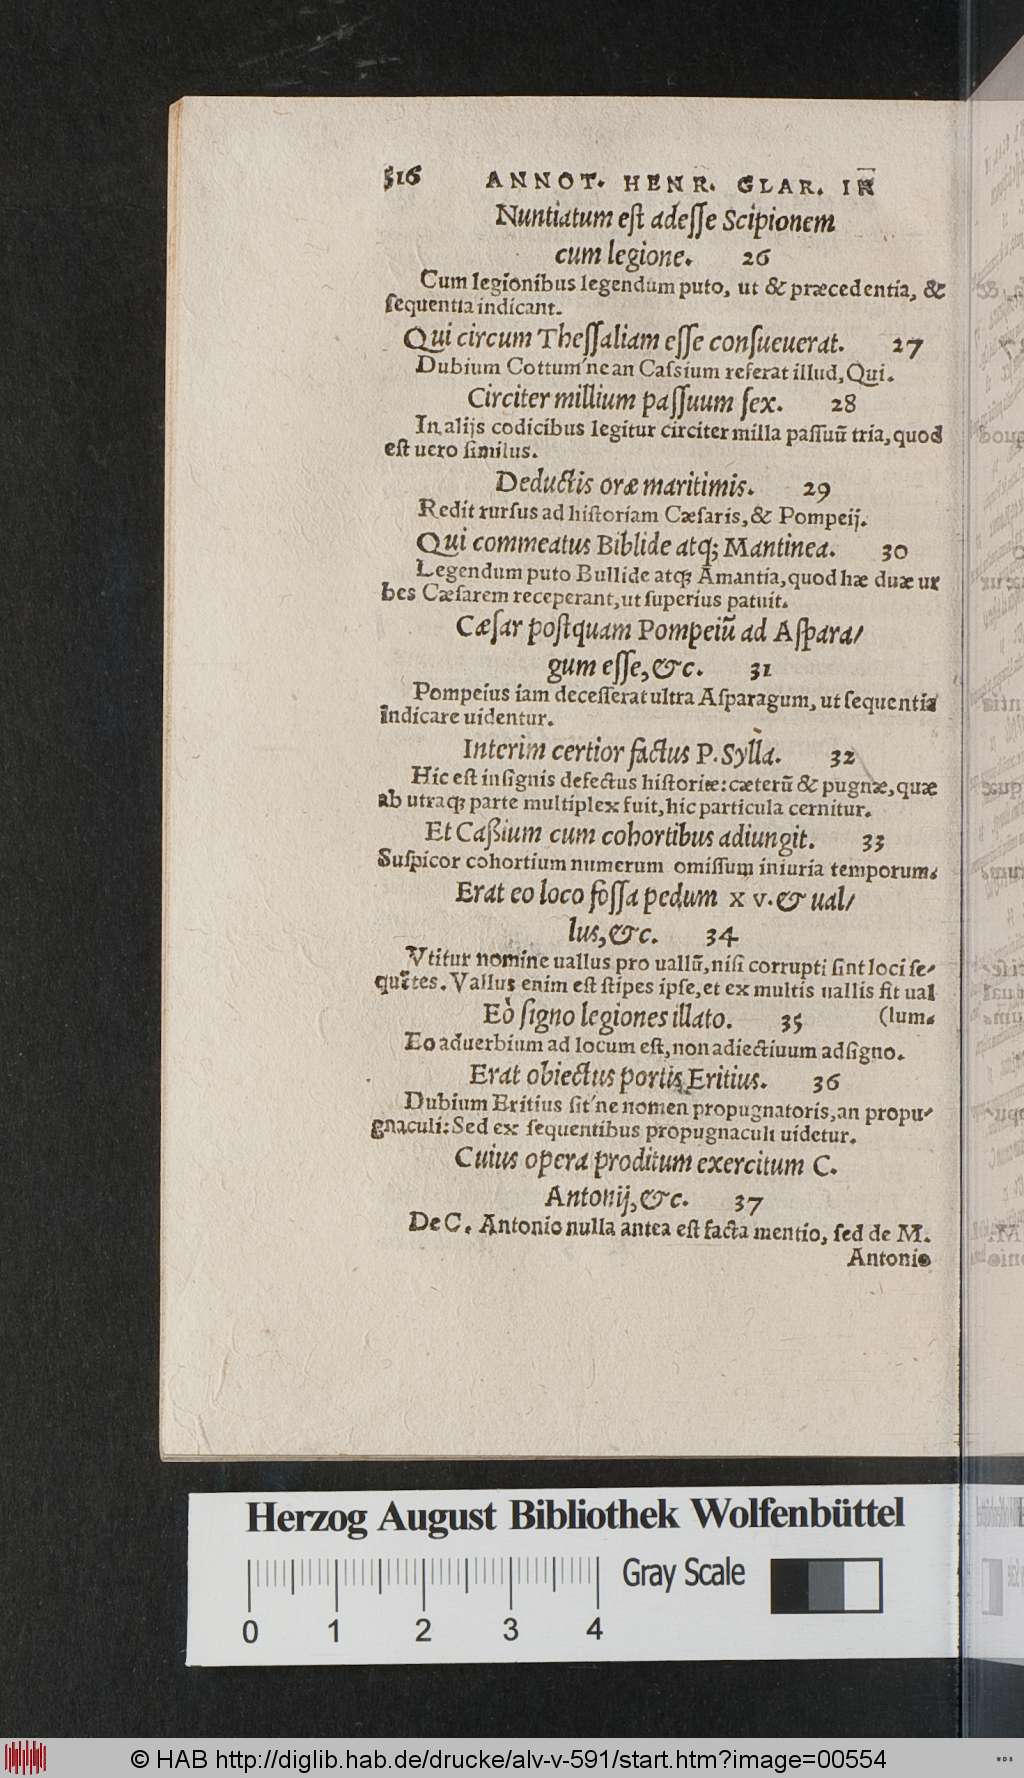 516 ANNOT. HENR. GLAR. IN
Nuntiatum eſt adeſſe Scipionem
cum legione. 26
Cum legionibus legendum puto, ut & præcedentia, &
ſequentia indicant.
Qui circum Theſſaliam eſſe conſueuerat. 27
Dubium Cottum'ne an Caſsium referat illud, Qui.
Circiter millium paſſuum ſex. 28
In alijs codicibus legitur circiter milla paſſuũ tria, quod
eſt uero ſimilus.
Deductis oræ maritimis. 29
Redit rurſus ad hiſtoriam Cæſaris, & Pompeij.
Qui commeatus Biblide atq; Mantinea. 30
Legendum puto Bullide atq; Amantia, quod hæ duæ ur
bes Cæſarem receperant, ut ſuperius patuit.
Cæſar poſtquam Pompeiũ ad Aſpara/
gum eſſe, &c. 31
Pompeius iam deceſſerat ultra Aſparagum, ut ſequentia
indicare uidentur.
Interim certior factus P. Sylla. 32
Hic eſt inſignis defectus hiſtoriæ: cæterũ & pugnæ, quæ
ab utraq; parte multiplex fuit, hic particula cernitur.
Et Caßium cum cohortibus adiungit. 33
Suſpicor cohortium numerum omiſſum iniuria temporum.
Erat eo loco foſſa pedum x v. & ual/
lus, &c. 34
Vtitur nomine uallus pro uallũ, niſi corrupti ſint loci ſe/
quẽtes. Vallus enim eſt ſtipes ipſe, et ex multis uallis fit ual
Eò ſigno legiones illato. 35 (lum.
Eo aduerbium ad locum eſt, non adiectiuum ad ſigno.
Erat obiectus portis Eritius. 36
Dubium Eritius ſit'ne nomen propugnatoris, an propu/
gnaculi: Sed ex ſequentibus propugnaculi uidetur.
Cuius opera proditum exercitum C.
Antonij, &c. 37
De C. Antonio nulla antea eſt facta mentio, ſed de M.
Antonio
Herzog August Bibliothek Wolfenbüttel
Gray Scale
0 1 2 3 4
© HAB http://diglib.hab.de/drucke/alv-v-591/start.htm?image=00554